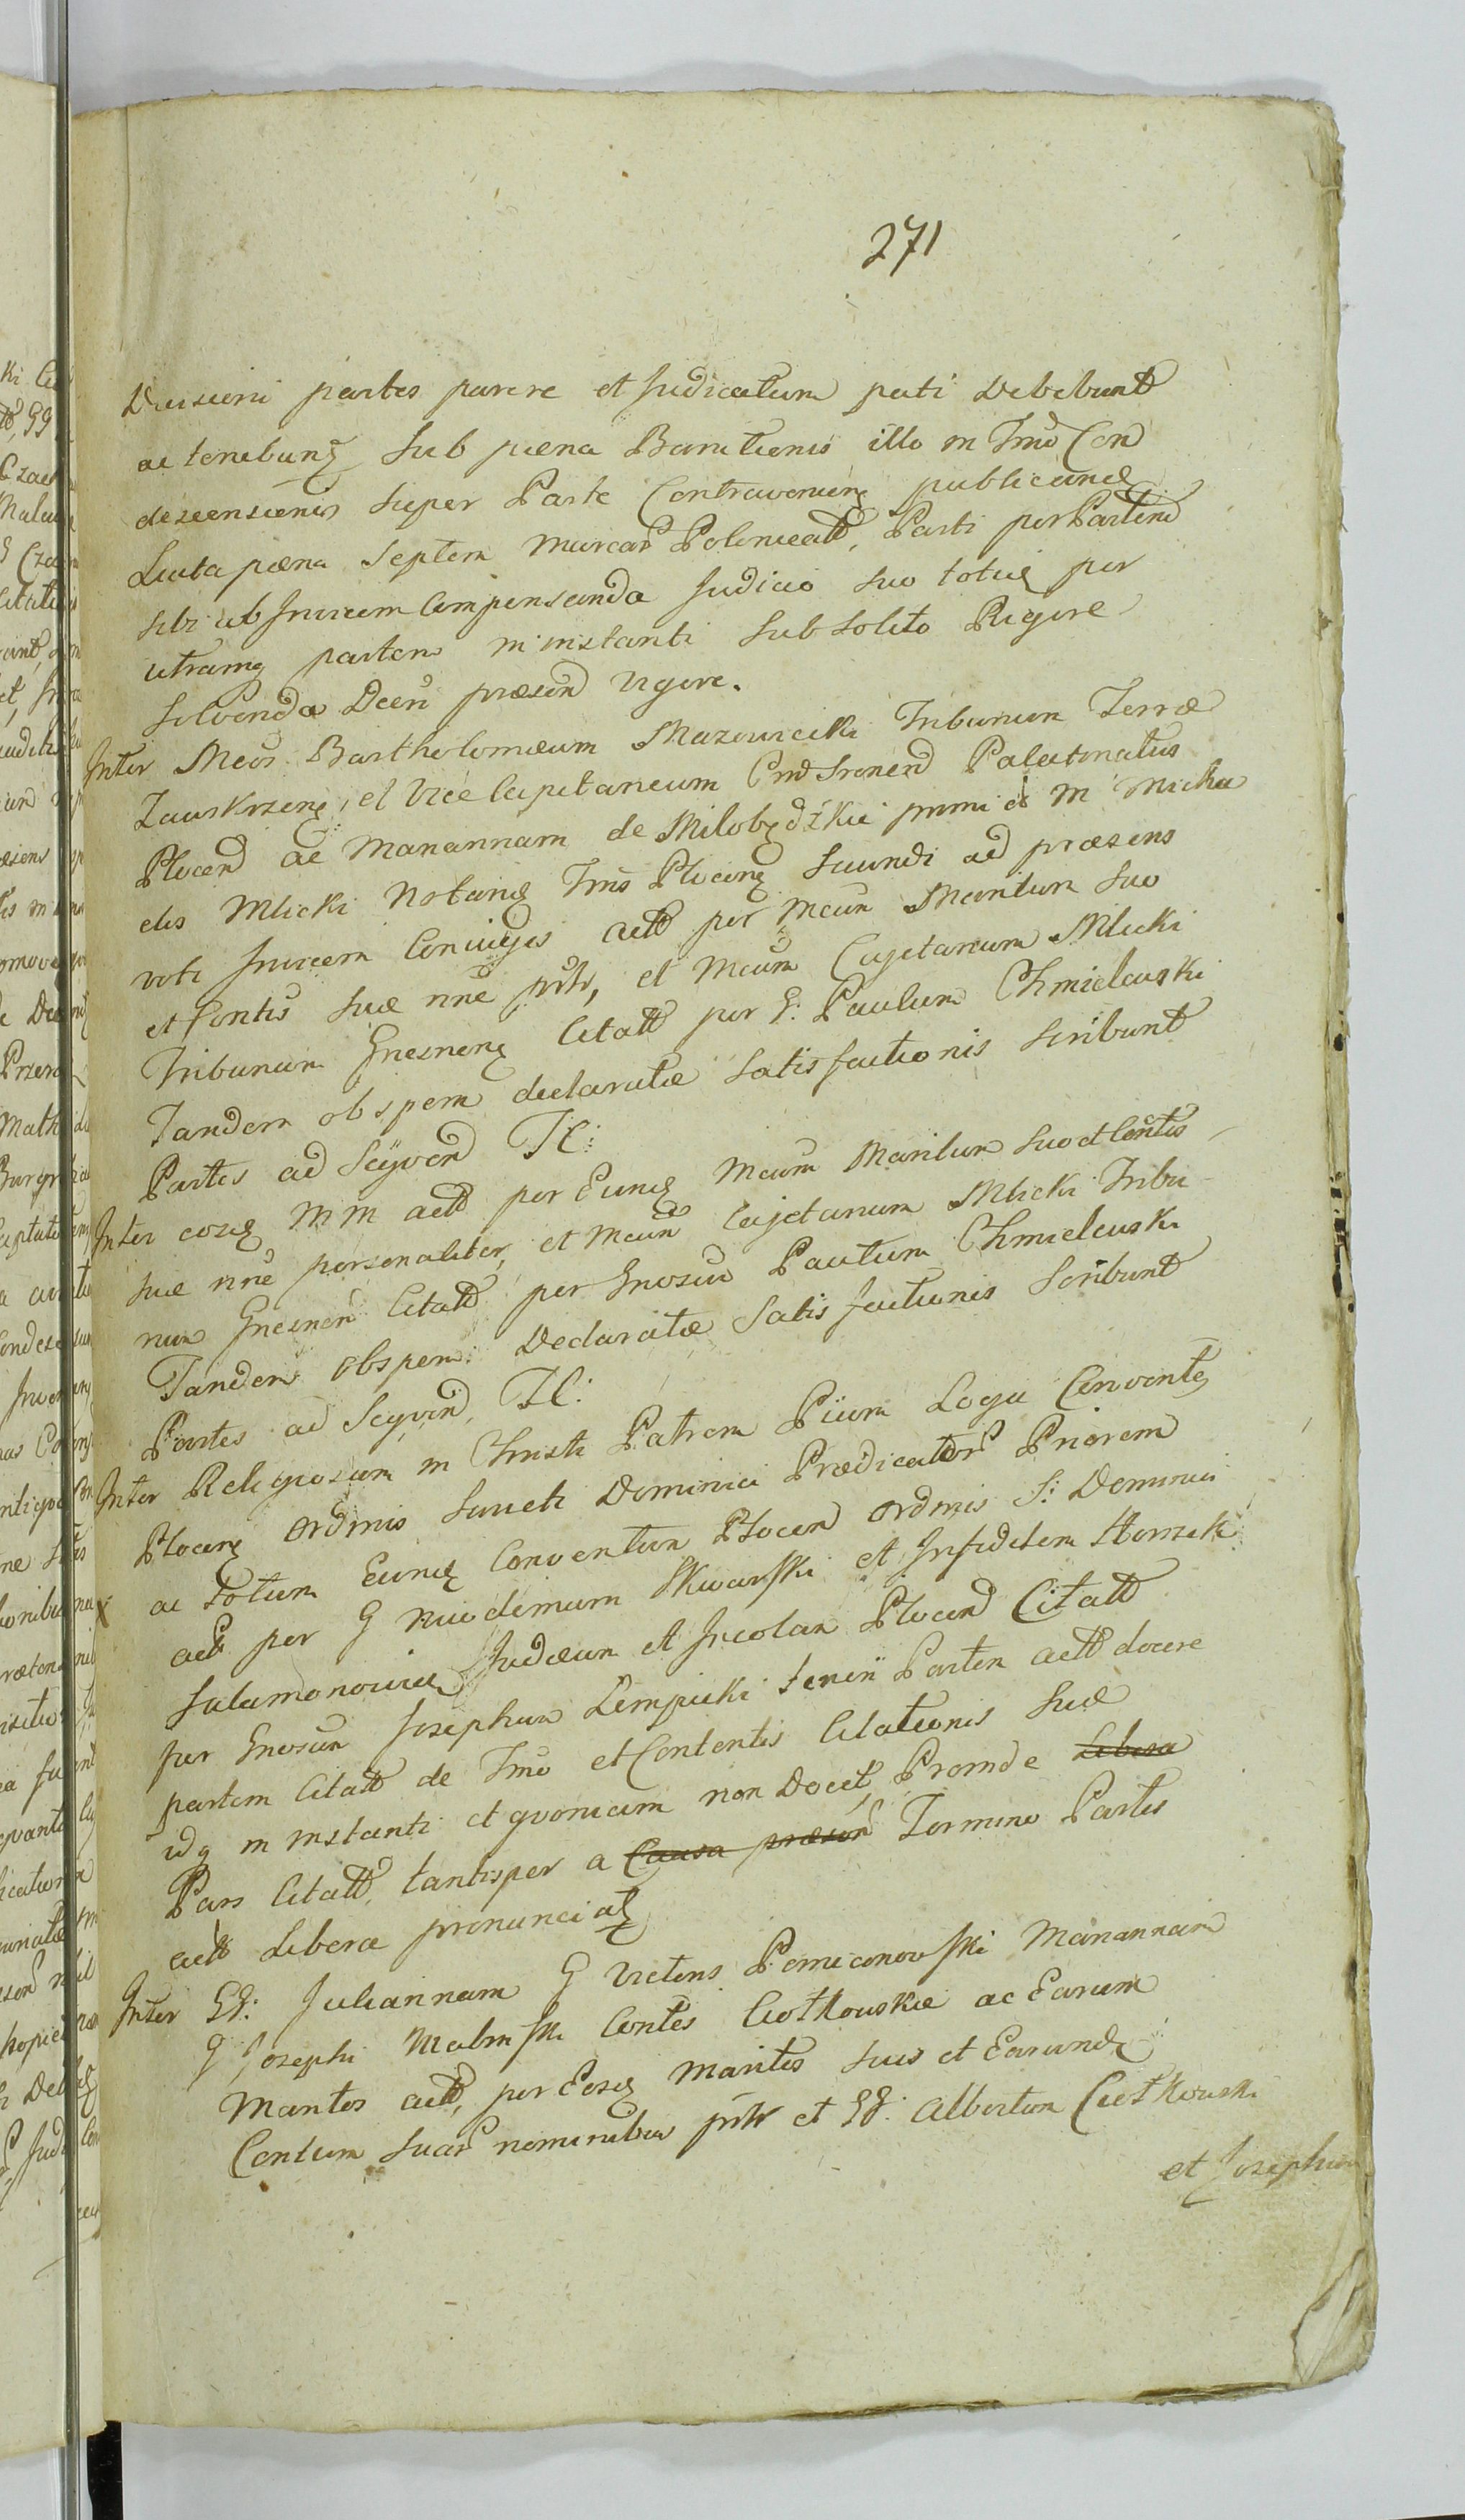 271
Divisioni partes parere et Judicatum pati Debebunt
ac tenebunt sub pæna Banitionis illo in Tmo Con
descensionis super Parte Contravenien publicand
Luita pæna septem marcar Polonicatt, Parti per Partem
sibi ab Invicem Compensanda Judicio suo toties per
utramq partem in instanti sub solito Rigore
solvenda Decri præsen vigore.
Inter Meos Bartholomæum Mazowiecki Tribunum Terræ
Zawskrzen, et Vice Capitaneum Cast Palatinatus
Plocen ac Mariannam de Milobędzkie primi et in Micha
elis Mlicki Notarii Tmis Plocen secundi ad præsens
voti Invicem Coniuges actt per Mcum Maritum suo
et Contis suæ nne pntr, et Mcum Cajetanum Mlicki
Tribunum Gnesnen Citatt per G: Paulum Chmielewski
Tandem ob spem declaratæ satisfactionis scribunt
Partes ad Seqven TC:
Inter eosd MM actt per Eund Mcum Maritum suo et Contis
suæ nne personaliter, et Mcum Cajetanum Mlicki Tribu
num Gnesnen Citatt per Gnosum Paulum Chmielewski
Tandem ob spem Declaratæ Satisfactionis Scribunt
Partes ad Seqven, TC:
Inter Religiosum in Christi Patrem Pium Loga Conventus
Plocen Ordinis Sancti Dominici Prædicator Priorem
ac totum Eund Conventum Plocen Ordinis S: Dominici
actt per G Nicodemum Skwarski et Infidelem Herszek
Salamonowicz Judæum et Incolam Plocen Citatt
per Gnosum Josephum Lempicki teneri Partem actt docere
partem Citatt de Tmo et Contentis Citationis suæ
idq in instanti et qvoniam non Docet, Proinde Libera
Pars Citatt, tantisper a Causa præsen Termino Partis
actt Libera pronunciat
Inter GG: Juliannam G Victens Pomianowski Mariannam
G Josephi Malinski Contes Ciotkowskie ac Earum
Maritos actt, per Eosd Maritos suis et Earund
Contum suar nominibus pntr et GG: Albertum Ciotkowski
et Josephum